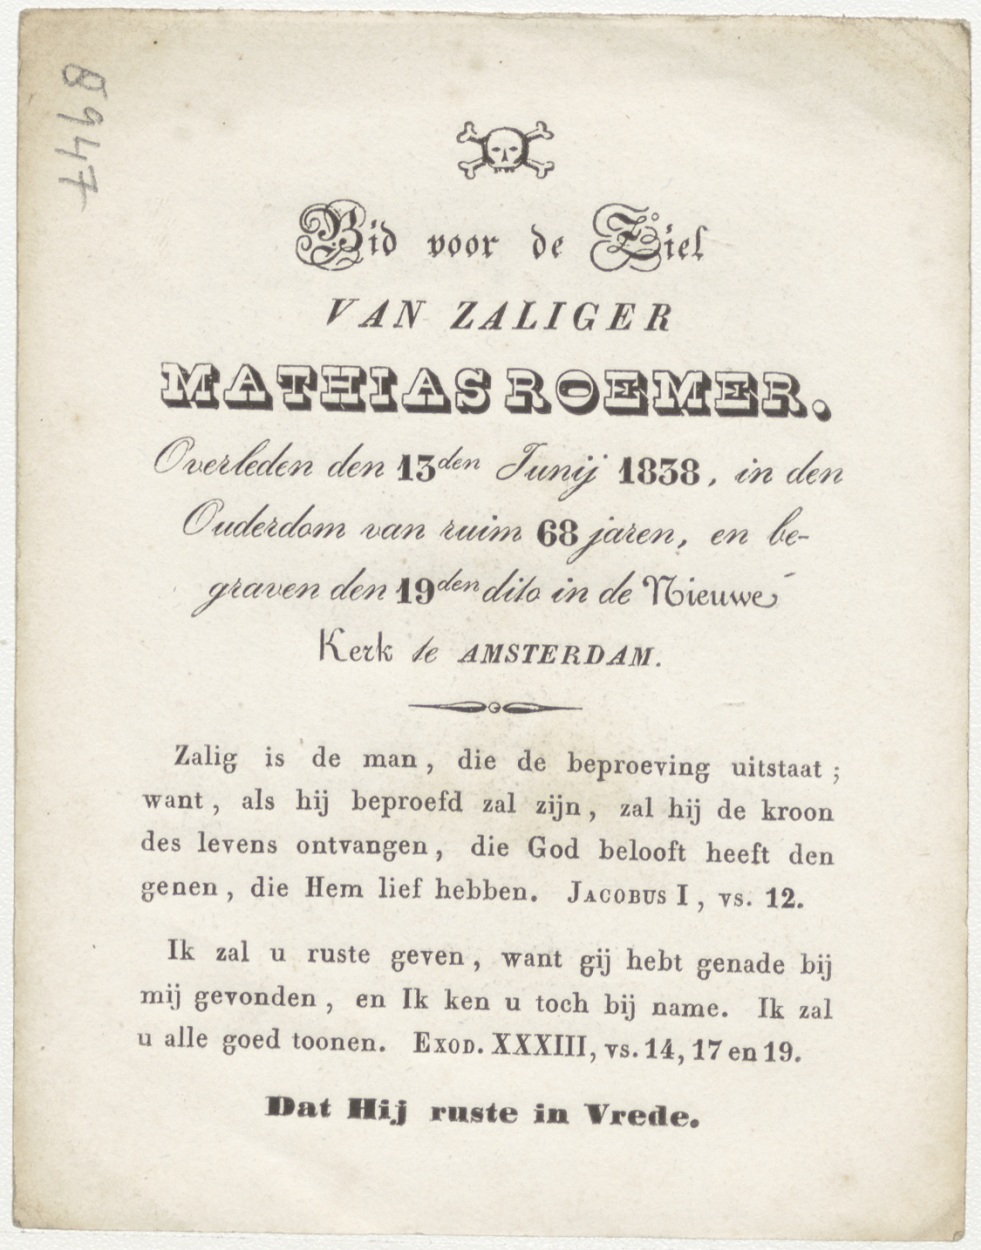 8947
Bid voor de Ziel
VAN ZALIGER
MATHIAS ROEMER.
Overleden den 13den Junij 1838, in den
Ouderdom van ruim 68 jaren, en be-
graven den 19den dito in de Nieuwe
Kerk te AMSTERDAM.
Zalig is de man, die de beproeving uitstaat;
want, als hij beproefd zal zijn, zal hij de kroon
des levens ontvangen, die God belooft heeft den
genen, die Hem lief hebben. JACOBUS I, vs. 12.
Ik zal u ruste geven, want gij hebt genade bij
mij gevonden, en Ik ken u toch bij name. Ik zal
u alle goed toonen. EXOD. XXXIII, vs. 14, 17 en 19.
Dat Hij ruste in Vrede.